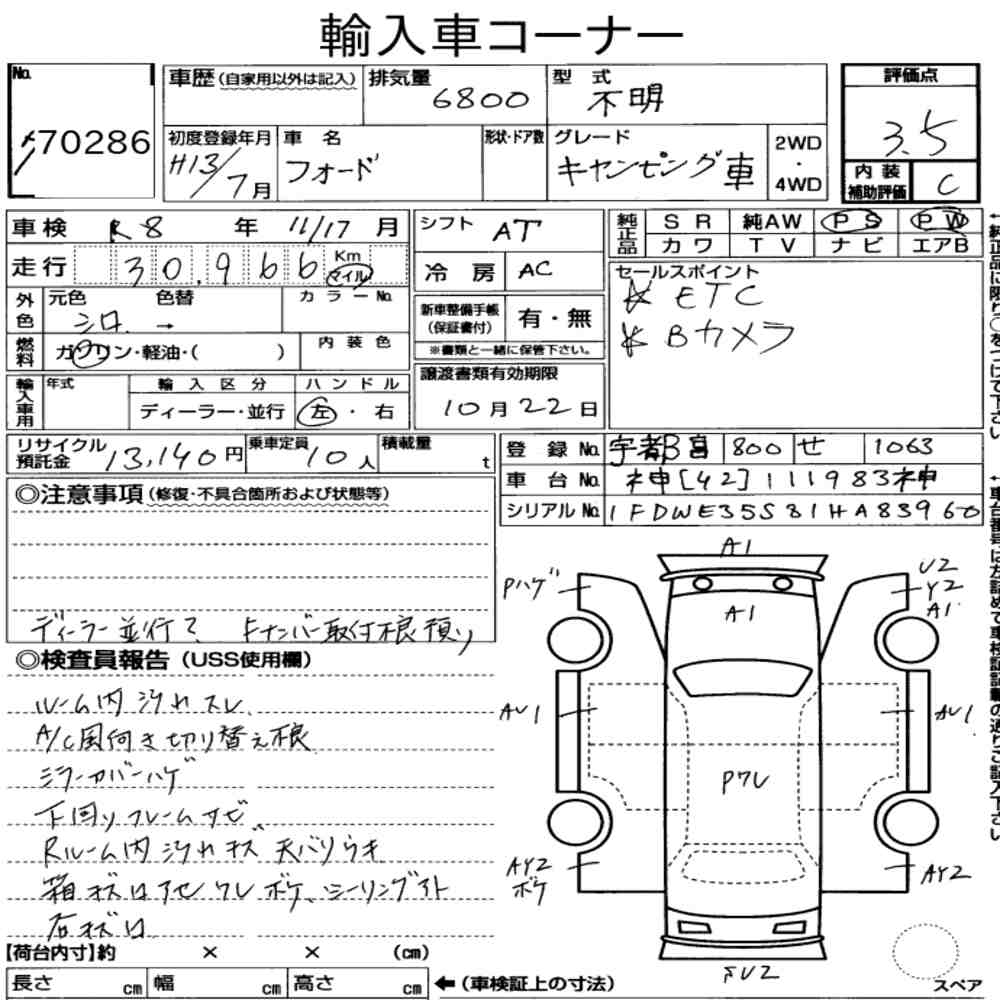 輸入車コーナー
No. 70286
車歴 (自家用以外は記入)
排気量 6800
型式 不明
評価点 3.5
初度登録年月 H13/7月
車名 フォード
形状・ドア数
グレード キャンピング車
2WD・4WD
内装補助評価 C
車検 R8年 11/17月
シフト AT
純正品 SR 純AW PS PW
カワ TV ナビ エアB
走行 30,966 Km マイル
冷房 AC
セールスポイント
☆ ETC
☆ Bカメラ
外色 元色 シロ 色替 → カラーNo.
新車整備手帳(保証書付) 有・無
※書類と一緒に保管下さい。
燃料 ガソリン・軽油・( ) 内装色
譲渡書類有効期限
10月22日
輸入車用 年式 輸入区分 ハンドル
ディーラー・並行 左・右
リサイクル預託金 13,140円
乗車定員 10人
積載量 t
登録No. 宇都宮 800 せ 1063
車台No. 神[42]111983神
シリアルNo. 1FDWE35S81HA83960
◎注意事項 (修復・不具合箇所および状態等)
ディーラー並行? Fナンバー取付根預り
◎検査員報告 (USS使用欄)
ルーム内汚れスレ
A/C風向き切り替え根
ミラーカバーハゲ
下回りフレームサビ
Rルーム内汚れキズ天バリウキ
箱キズ凹アセワレボケ、シーリングアト
石キズ凹
【荷台内寸】約 × × (cm)
長さ cm 幅 cm 高さ cm
←(車検証上の寸法)
A1
Pハゲ
A1
U2
Y2
A1
AU1
AU1
Pワレ
AY2
ボケ
AY2
FU2
スペア
←純正品に限り○をつけて下さい
←車台番号は左詰めで車検証記載の通りご記入下さい